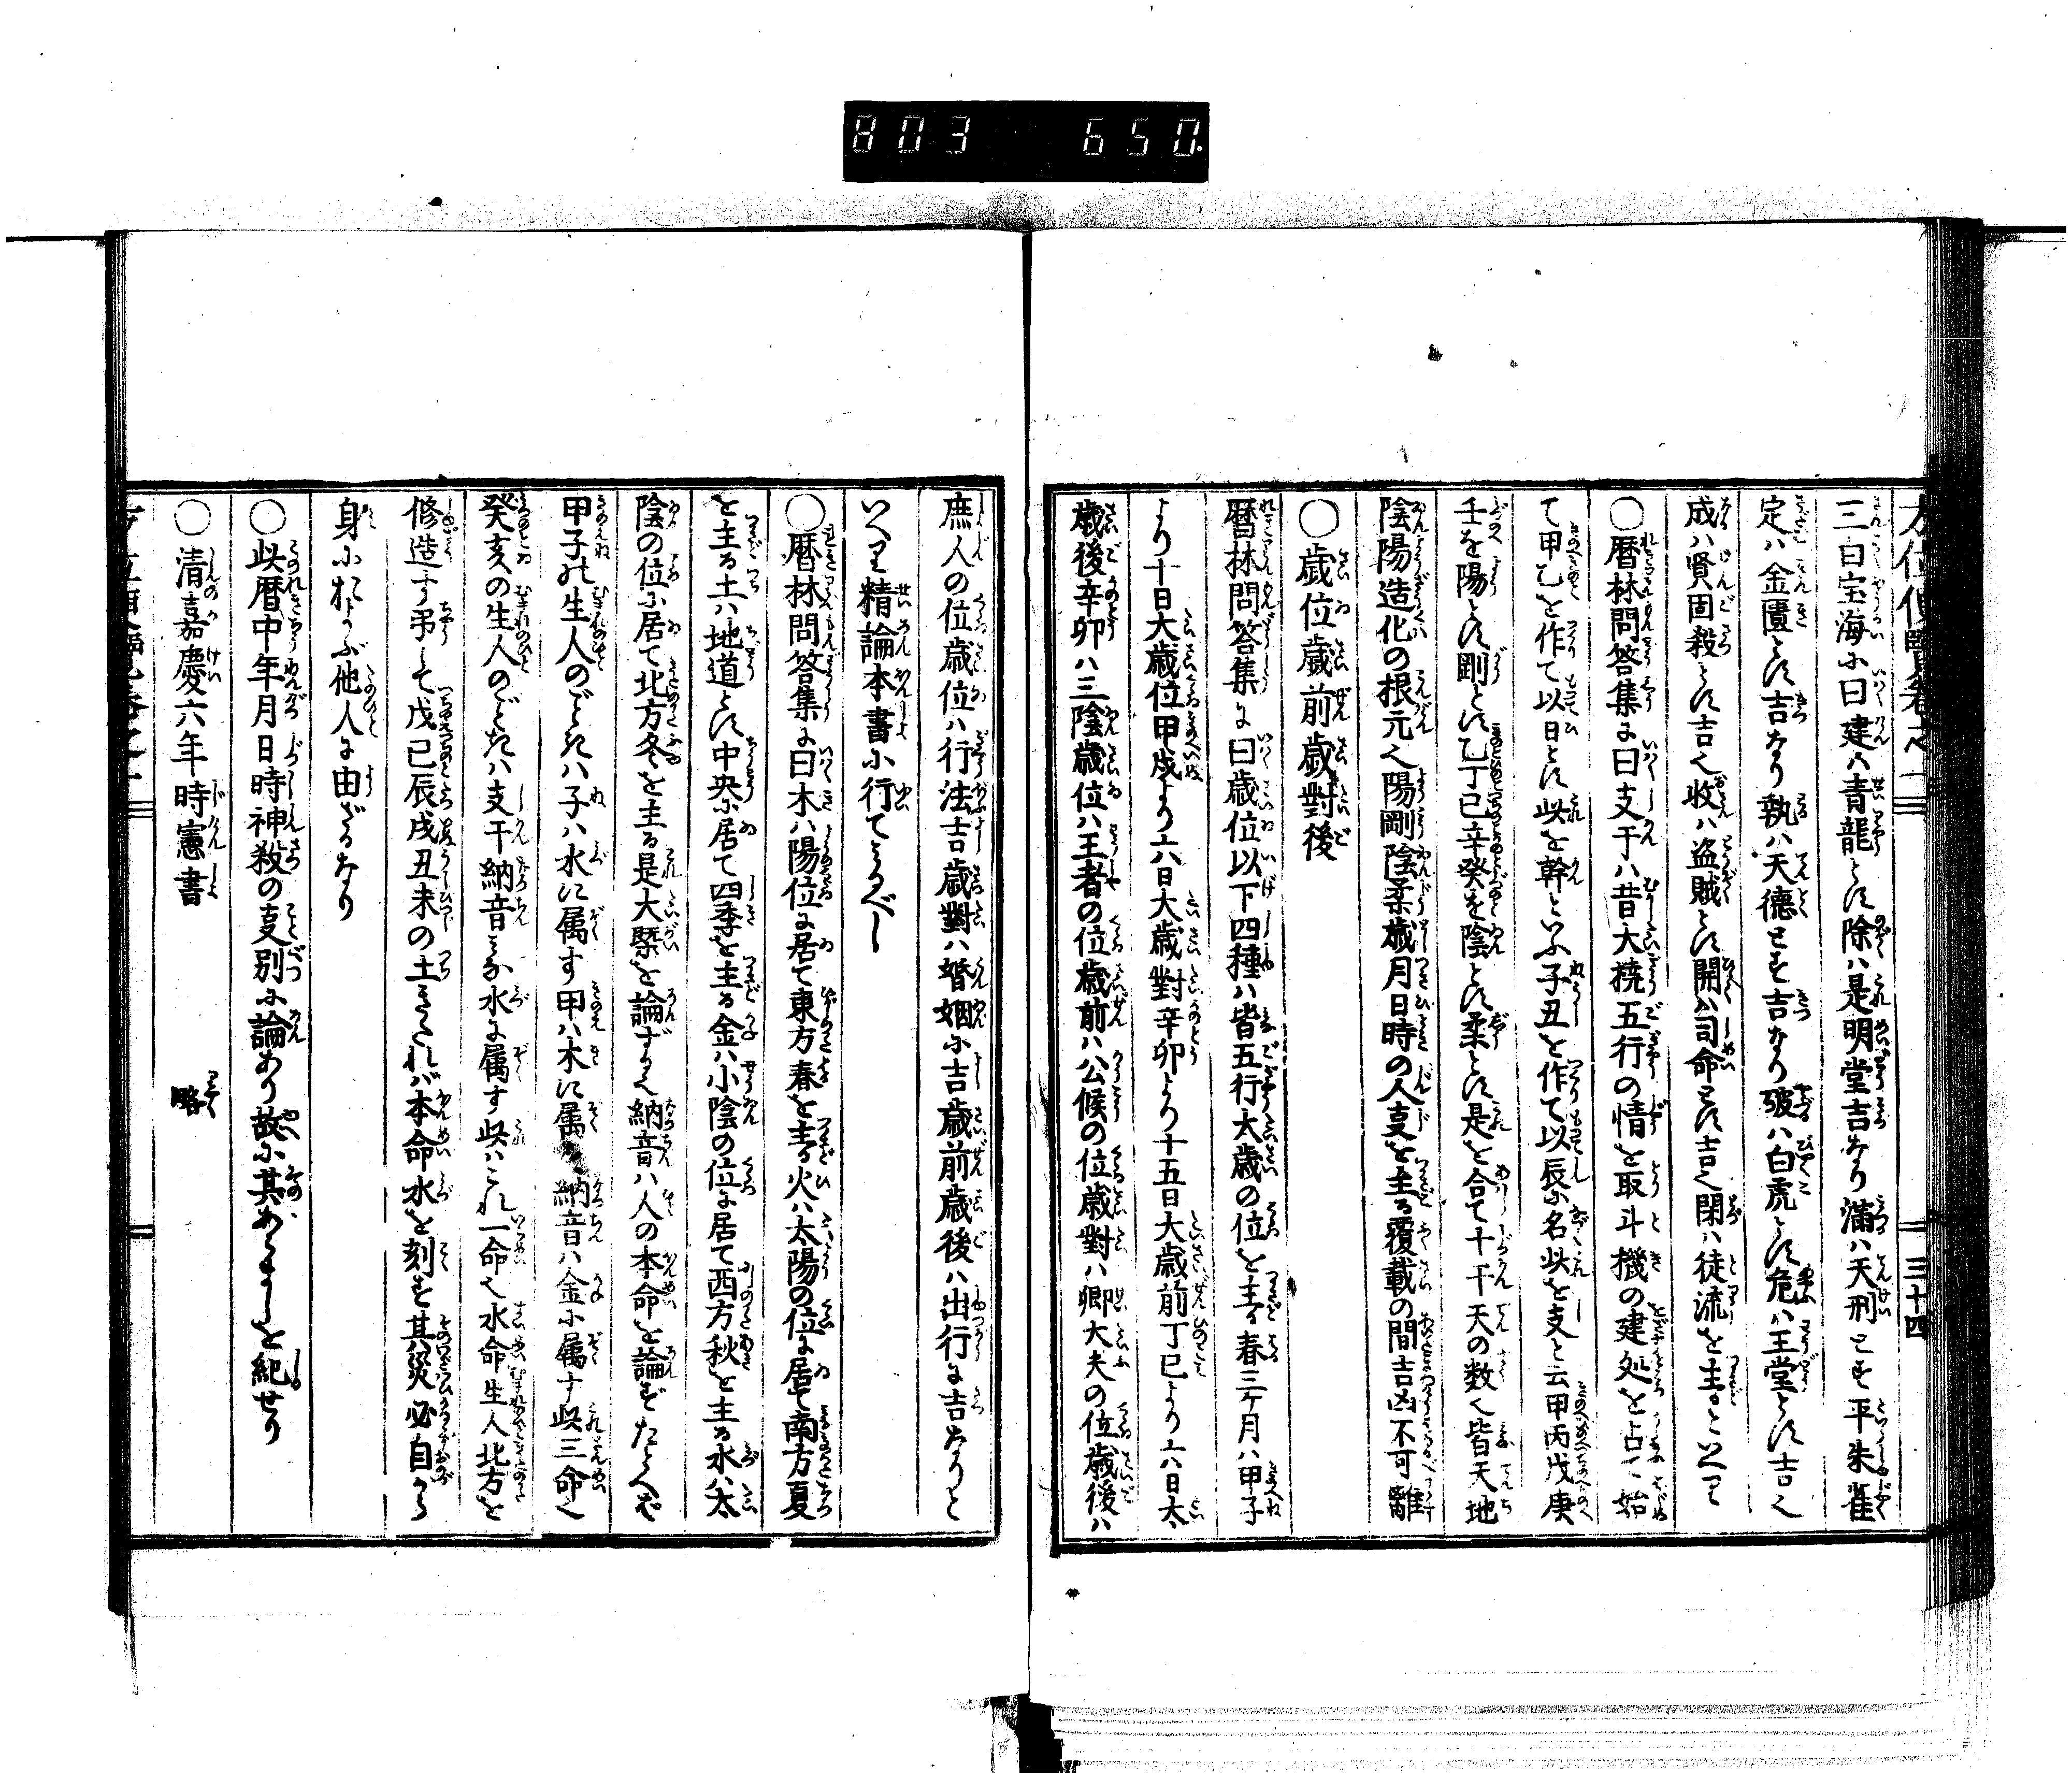 803 650.
三白宝海小曰建ハ青龍とす除ハ是明堂吉なり満ハ天刑とす平朱雀
定ハ金匱とす吉なり執ハ天德とす吉なり破ハ白虎とす危ハ王堂とす吉く
成ハ賢固殺とす吉く收ハ盗賊とす開ハ司命とす吉く閉ハ徒流を主るといへり
〇暦林問答集に曰支干ハ昔大撓五行の情を取斗機の建処を占て始
て甲乙を作て以日とす此を幹といふ子丑を作て以辰小名此を支と云甲丙戊庚
壬を陽とす剛とす乙丁己辛癸を陰とす柔とす是を合て十干天の数く皆天地
陰陽造化の根元く陽剛陰柔歳月日時の人支を主る覆載の間吉凶不可離
〇歳位歳前歳對後
暦林問答集に曰歳位以下四種ハ皆五行大歳の位を主る春三ケ月ハ甲子
より十日大歳位甲戌より六日大歳對辛卯より十五日大歳前丁巳より六日太
歳後辛卯ハ三陰歳位ハ王者の位歳前ハ公候の位歳對ハ卿大夫の位歳後ハ
三十四
庶人の位歳位ハ行法吉歳對ハ婚姻小吉歳前歳後ハ出行に吉なりと
いへり精論本書小行てみるべし
〇暦林問答集に曰木ハ陽位に居て東方春を主る火ハ太陽の位に居て南方夏
を主る土ハ地道とす中央小居て四季を主る金ハ小陰の位に居て西方秋を主る水ハ太
陰の位小居て北方冬を主る是大槩を論ずるく納音ハ人の本命を論ずたとへば
甲子の生人のごときハ子ハ水に属す甲ハ木に属納音ハ金小属す此三命く
癸亥の生人のごときハ支干納音みな水に属す此ハこれ一命く水命生人北方を
修造す弔して戊己辰戌丑未の土きたれバ本命水を剋す其災必自から
身小およぶ他人に由ざるなり
〇此暦中年月日時神殺の支別に論あり故小其あらましを紀せり
〇清嘉慶六年時憲書 略